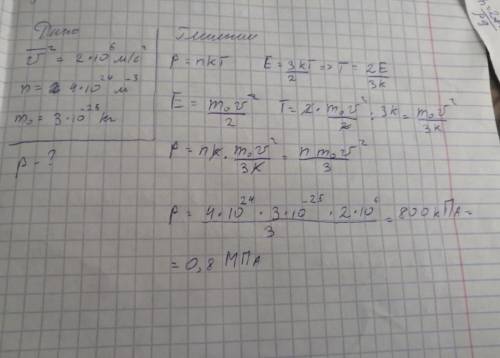 Дано
v̅² = 2·10⁶ м/с²
n = 4·10²⁴ м⁻³
m₀ = 3·10⁻²⁵ кг
p - ?
Решение
p = nkT   E = 3kT/2 => T = 2E/3k
E = m₀v²/2   T = 2 · m₀v²/2 : 3k = m₀v²/3k
p = nk · m₀v²/3k = nm₀v²/3
p = 4·10²⁴ · 3·10⁻²⁵ · 2·10⁶/3 = 800кПа =
= 0,8 МПа